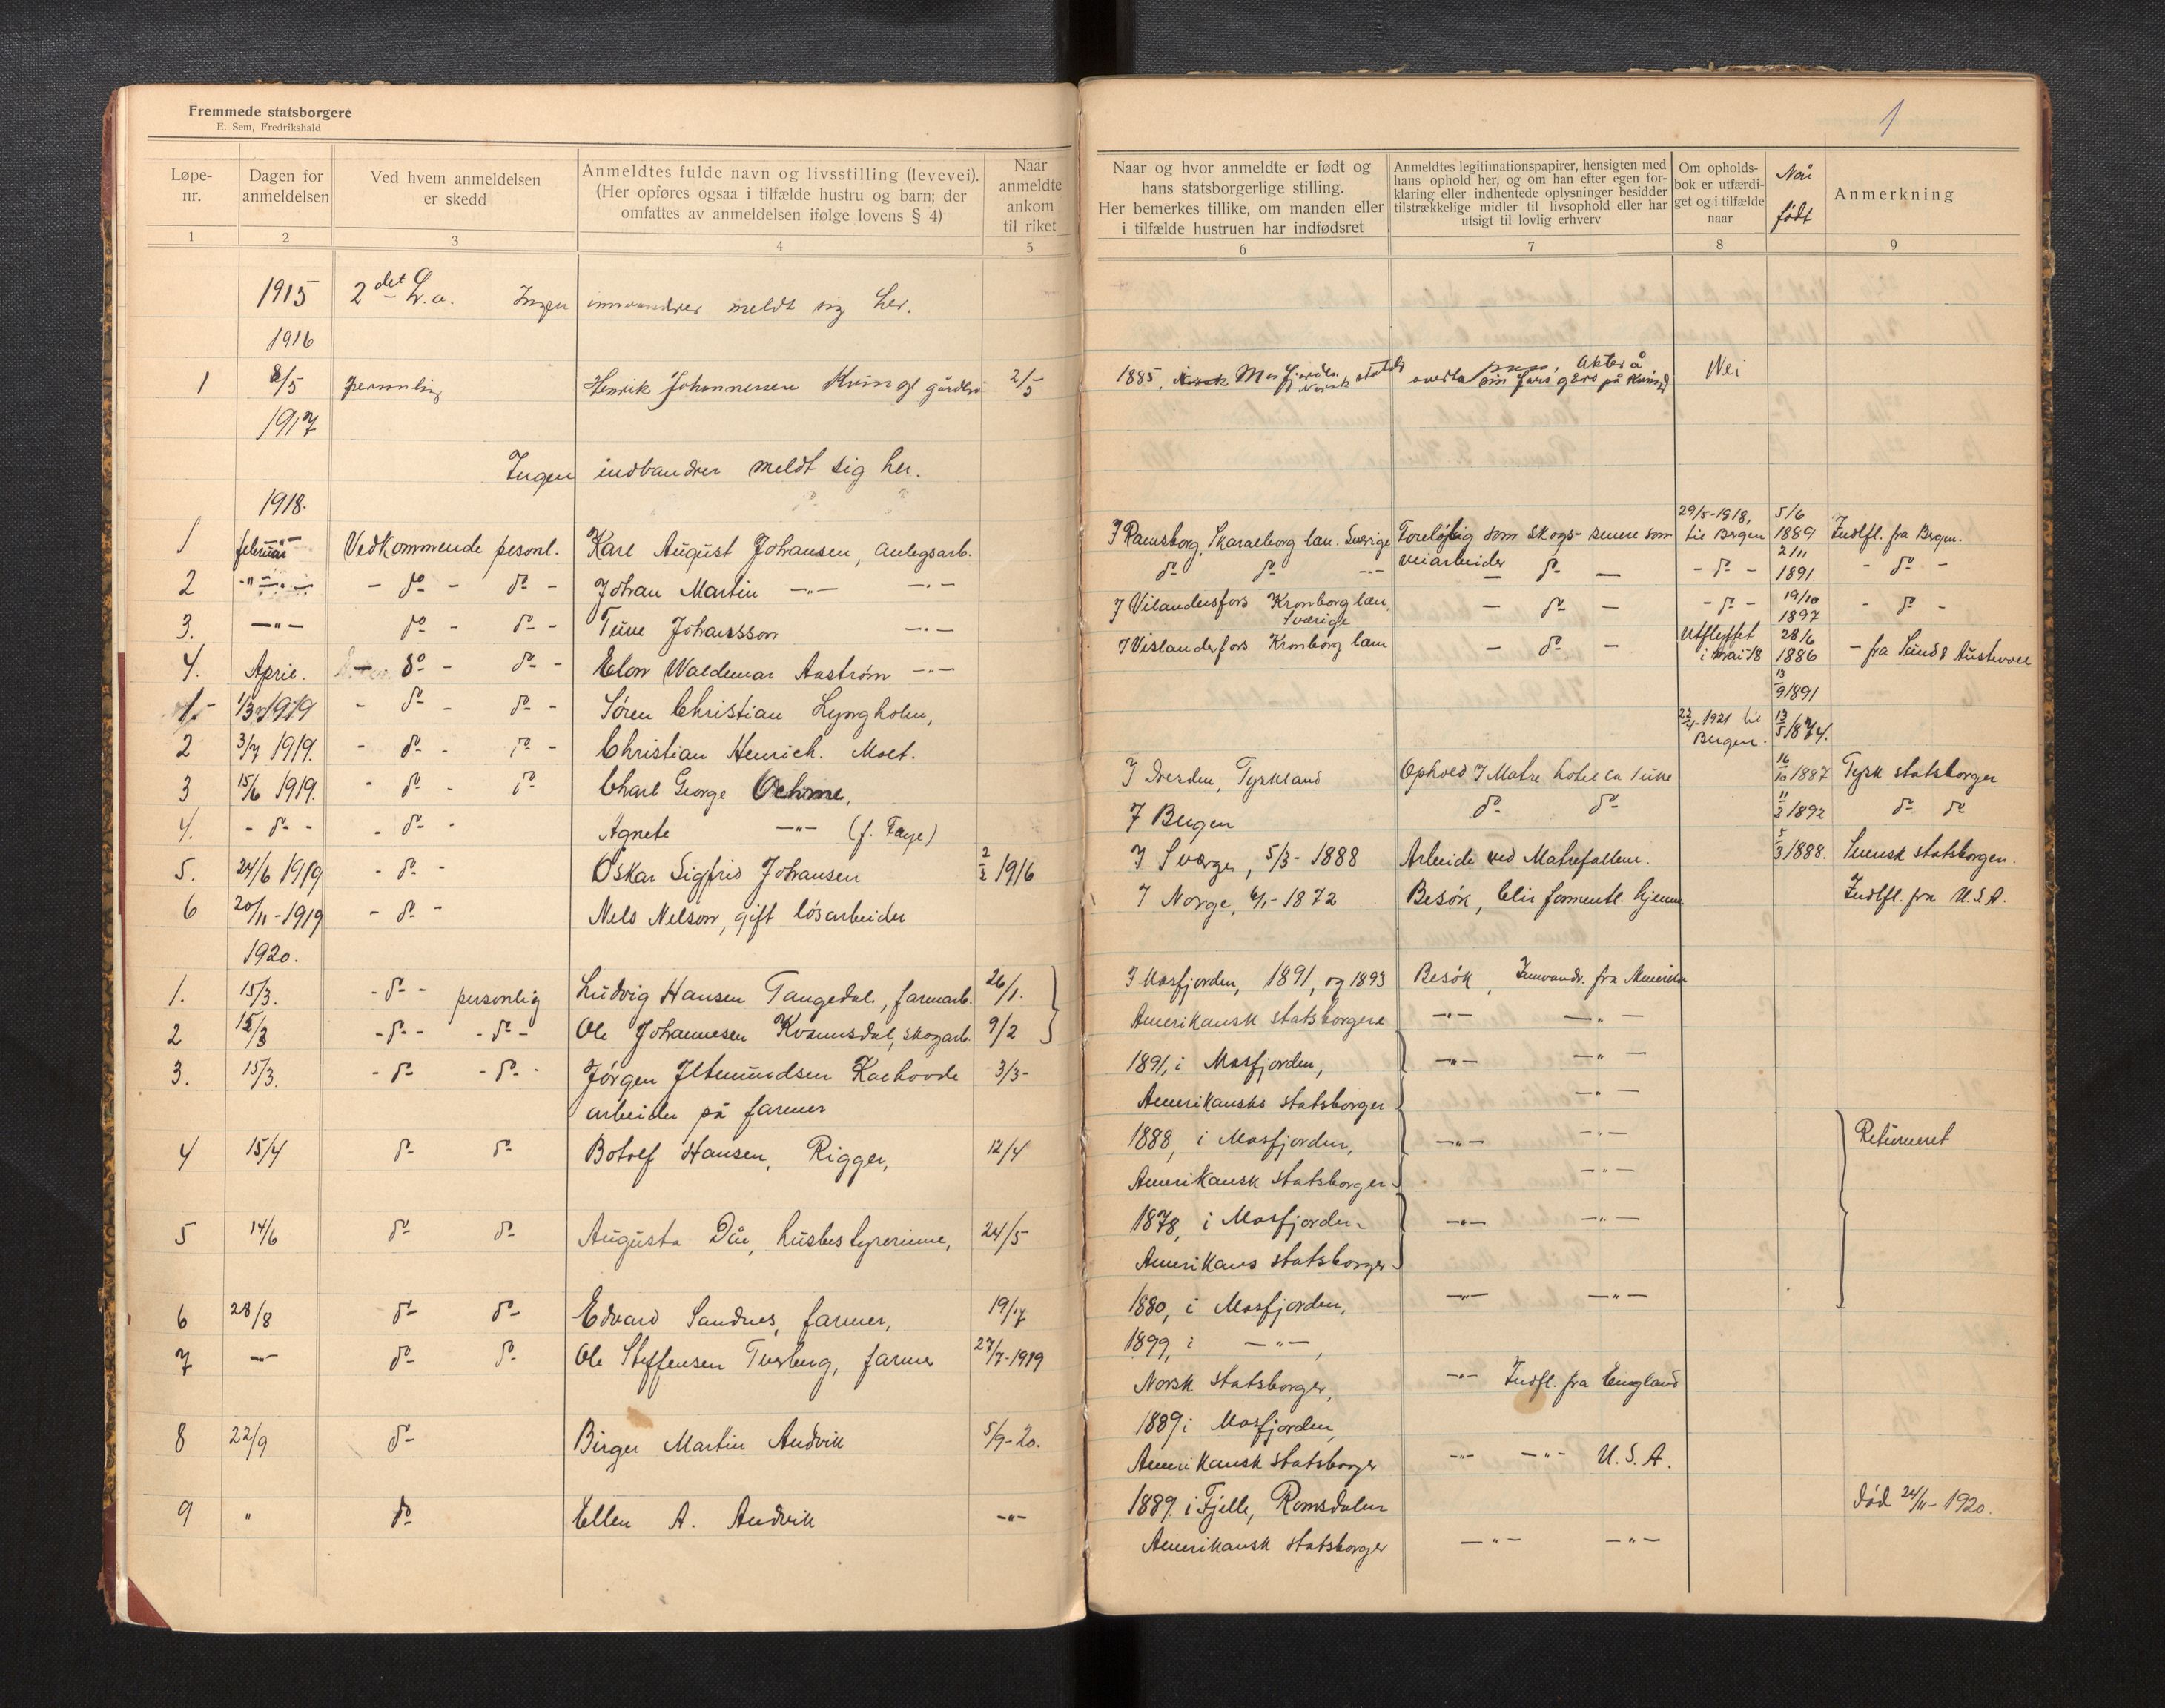 Fremmede statsborgere
E. Sem, Fredrikshald
1
Løpe-nr.
Dagen for anmeldelsen
Ved hvem anmeldelsen er skedd
Anmeldtes fulde navn og livsstilling (levevei).
(Her opføres ogsaa i tilfælde hustru og barn; der omfattes av anmeldelsen ifølge lovens § 4)
Naar anmeldte ankom til riket
Naar og hvor anmeldte er født og hans statsborgerlige stilling.
Her bemerkes tillike, om manden eller i tilfælde hustruen har indfødsret
Anmeldtes legitimationspapirer, hensigten med hans ophold her, og om han efter egen forklaring eller indhentede oplysninger besidder tilstrækkelige midler til livsophold eller har utsigt til lovlig erhverv
Om opholdsbok er utfærdiget og i tilfælde naar
Når født
Anmerkning
1 2 3 4 5 6 7 8 9
1915 2det h.a. Ingen innvandrer meldt sig her.
1916
1 8/5 personlig Henrik Johannessen Kvinge 2/5 1885, Masfjorden Norsk overta sin fars gård på Nei
1917
Ingen indvandrer meldt sig her.
1918.
1 februar Vedkommende pesonl. Karl August Johansen, anlegsarb. I Ramsborg, Skaraeborg län. Sverige Foreløbig som skogs- senere som veiarbeider 29/5-1918, til Bergen 5/6 1889 Indlfl. fra Bergen.
2 -"- - do - do - Johan Martin -"- -"- do do -"- - do - - do - 2/11 1891. - do -
3. -"- do - do - Tuve Johansson -"- I Vilandersfors Kronborg län, Sverige - do - - do - 19/10 1897 - do -
4. April. do - do - Elon Waldemar Aastrøm -"- I Vislanderfors Kronborg län - do - Utflyttet i mai 18 28/6 1886 - fra Sund & Austevoll
1. 1/3 1919 - do - do - Søren Christian Lyngholm, 13/9 1891
2 3/7 1919. - do - do - Christian Henrich. Moet. 23/4-1921 til Bergen. 13/5 1874.
3 15/6 1919. - do - do Charl George Oehme, I Dresden, Tyskland Ophold I Matre hotel ca 1 uke 16/10 1887 Tysk statsborger
4. - do - - do - Agnete -"- (f. Faye) I Bergen do do 11/2 1892 do do
5. 24/6 1919 - do - Oskar Sigfrid Johansen 2/2 1916 I Sverge, 5/3-1888 Arbeide ved Matrefallene. 5/3 1888. Svensk statsborger.
6 20/11-1919 - do - Nels Nelson, gift løsarbeider I Norge, 6/1-1872 Besøk, blir formentl. hjemme Indlfl. fra U.S.A.
1920.
1. 15/3. - do - personlig Ludvig Hansen Tangedal, farmarb. 26/1. I Masfjorden, 1891, og 1893 Besøk, Innvandr. fra Amerika
2 15/3 - do - - do - Ole Johannesen Kvamsdal, skogarb. 9/2 Amerikansk statsborgere -"- -"-
3. 15/3. - do - - do - Jørgen Iltmundsen Kaehovde 3/3- 1891, i Masfjorden, -"- -"-
arbeider på farmer Amerikansks statsborger -"-
4 15/4 do do Botolf Hansen, Rigger, 12/4 1888, i Masfjorden, -"- -"- Returneret
Amerikansk statsborger -"-
5 14/6 do do Augusta Dåe, husbestyrerinne, 24/5 1878, i Masfjorden -"- -"-
Amerikans statsborger
6 28/8 do do Edvard Sandnes, farmer, 19/17 1880, i Masfjorden, -"- -"-
7 -"- do do Ole Steffensen Tverberg, farmer 27/7-1919 1899, i -"-,
Norsk statsborger, -"- Indfl. fra England
8 22/9 do Birger Martin Andvik 5/9-20. 1889 i Masfjorden,
Amerikansk statsborger -"- -"- U.S.A.
9 " do Ellen A. Andvik -"- 1889. i Fjelle, Romsdalen død 24/11-1920.
Amerikansk statsborger -"- -"-